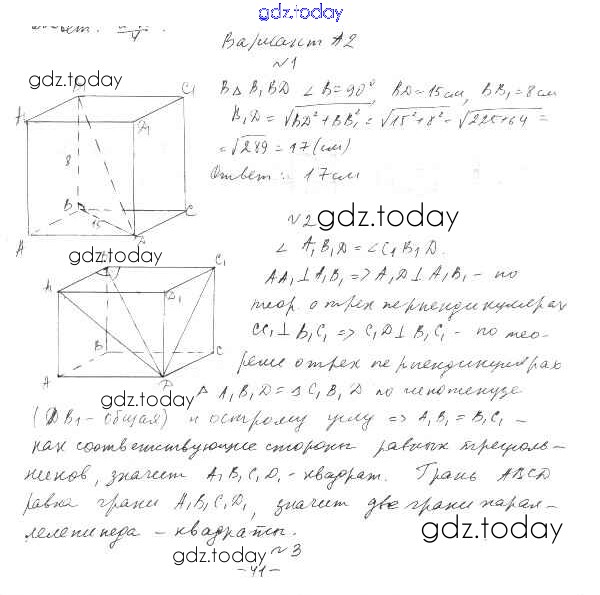 gdz.today
Вариант А2
№1
gdz.today
В Δ B₁BD ∠B=90° BD=15см, BB₁=8см
B₁D = √BD²+BB₁² = √15²+8² = √225+64 =
= √289 = 17 (см)
Ответ: 17см
A₁ B₁ C₁ D₁ 8 B 15 C A D
№2
gdz.today
gdz.today
∠A₁B₁D = ∠C₁B₁D.
AA₁⊥A₁B₁ => A₁D⊥A₁B₁ - по
теор. о трех перпендикулярах
CC₁⊥B₁C₁ => C₁D⊥B₁C₁ - по тео-
реме о трех перпендикулярах
A₁ C₁ D₁ B C A D
gdz.today
Δ A₁B₁D = Δ C₁B₁D по гипотенузе
(DB₁ - общая) и острому углу => A₁B₁ = B₁C₁ -
как соответствующие стороны равных треуголь-
ников, значит A₁B₁C₁D₁ - квадрат. Грань ABCD
равна грани A₁B₁C₁D₁, значит две грани парал-
лелепипеда - квадраты.
gdz.today
gdz.today
gdz.today
№3
-41-